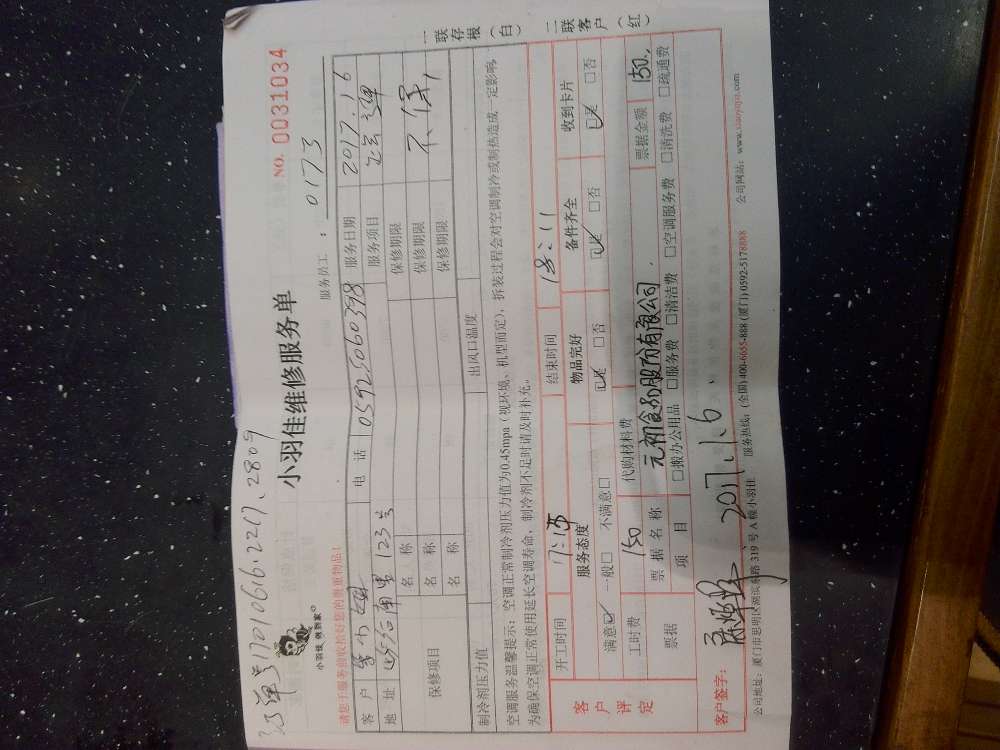 单号17010616.2217.2809
小羽佳 做到家
小羽佳维修服务单
NO. 0031034
请您于服务前收拾好您的贵重物品!
服务员工: 0173
客户 电话 05925060398 服务日期 2017.1.6
地址 123号 服务项目
保修项目 名称 保修期限
名称 保修期限 不保
名称 保修期限
制冷剂压力值 出风口温度
空调服务温馨提示:空调正常制冷剂压力值为0.45mpa(视环境、机型而定),拆装过程会对空调制冷或制热造成一定影响,
为确保空调正常使用延长空调寿命,制冷剂不足时请及时补充。
一联存根(白)
二联客户(红)
客户评定
开工时间 结束时间 18:11
服务态度 物品完好 备件齐全 收到卡片
满意☑ 一般□ 不满意□ ☑是 □否 ☑是 □否 ☑是 □否
工时费 150 代购材料费 票据金额 150.
票据 票据名称 元初食品股份有限公司
项目 □搬办公用品 □服务费 □清洁费 □空调服务费 □清洗费 □疏通费
客户签字: 2017.1.6
公司地址:厦门市思明区湖滨东路 319 号 A 幢小羽佳 服务热线:(全国) 400-6655-888 (厦门) 0592-5178888 公司网站:www.xiaoyujia.com